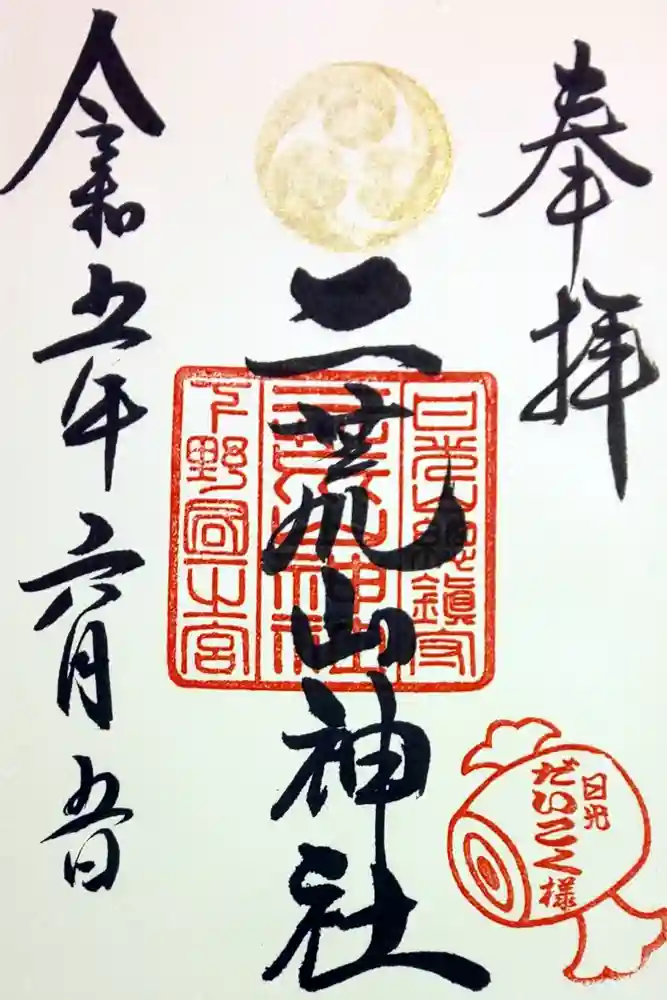 奉拝
二荒山神社
日光山総鎮守
二荒山神社
下野国一宮
日光
だいこく様
令和五年六月五日